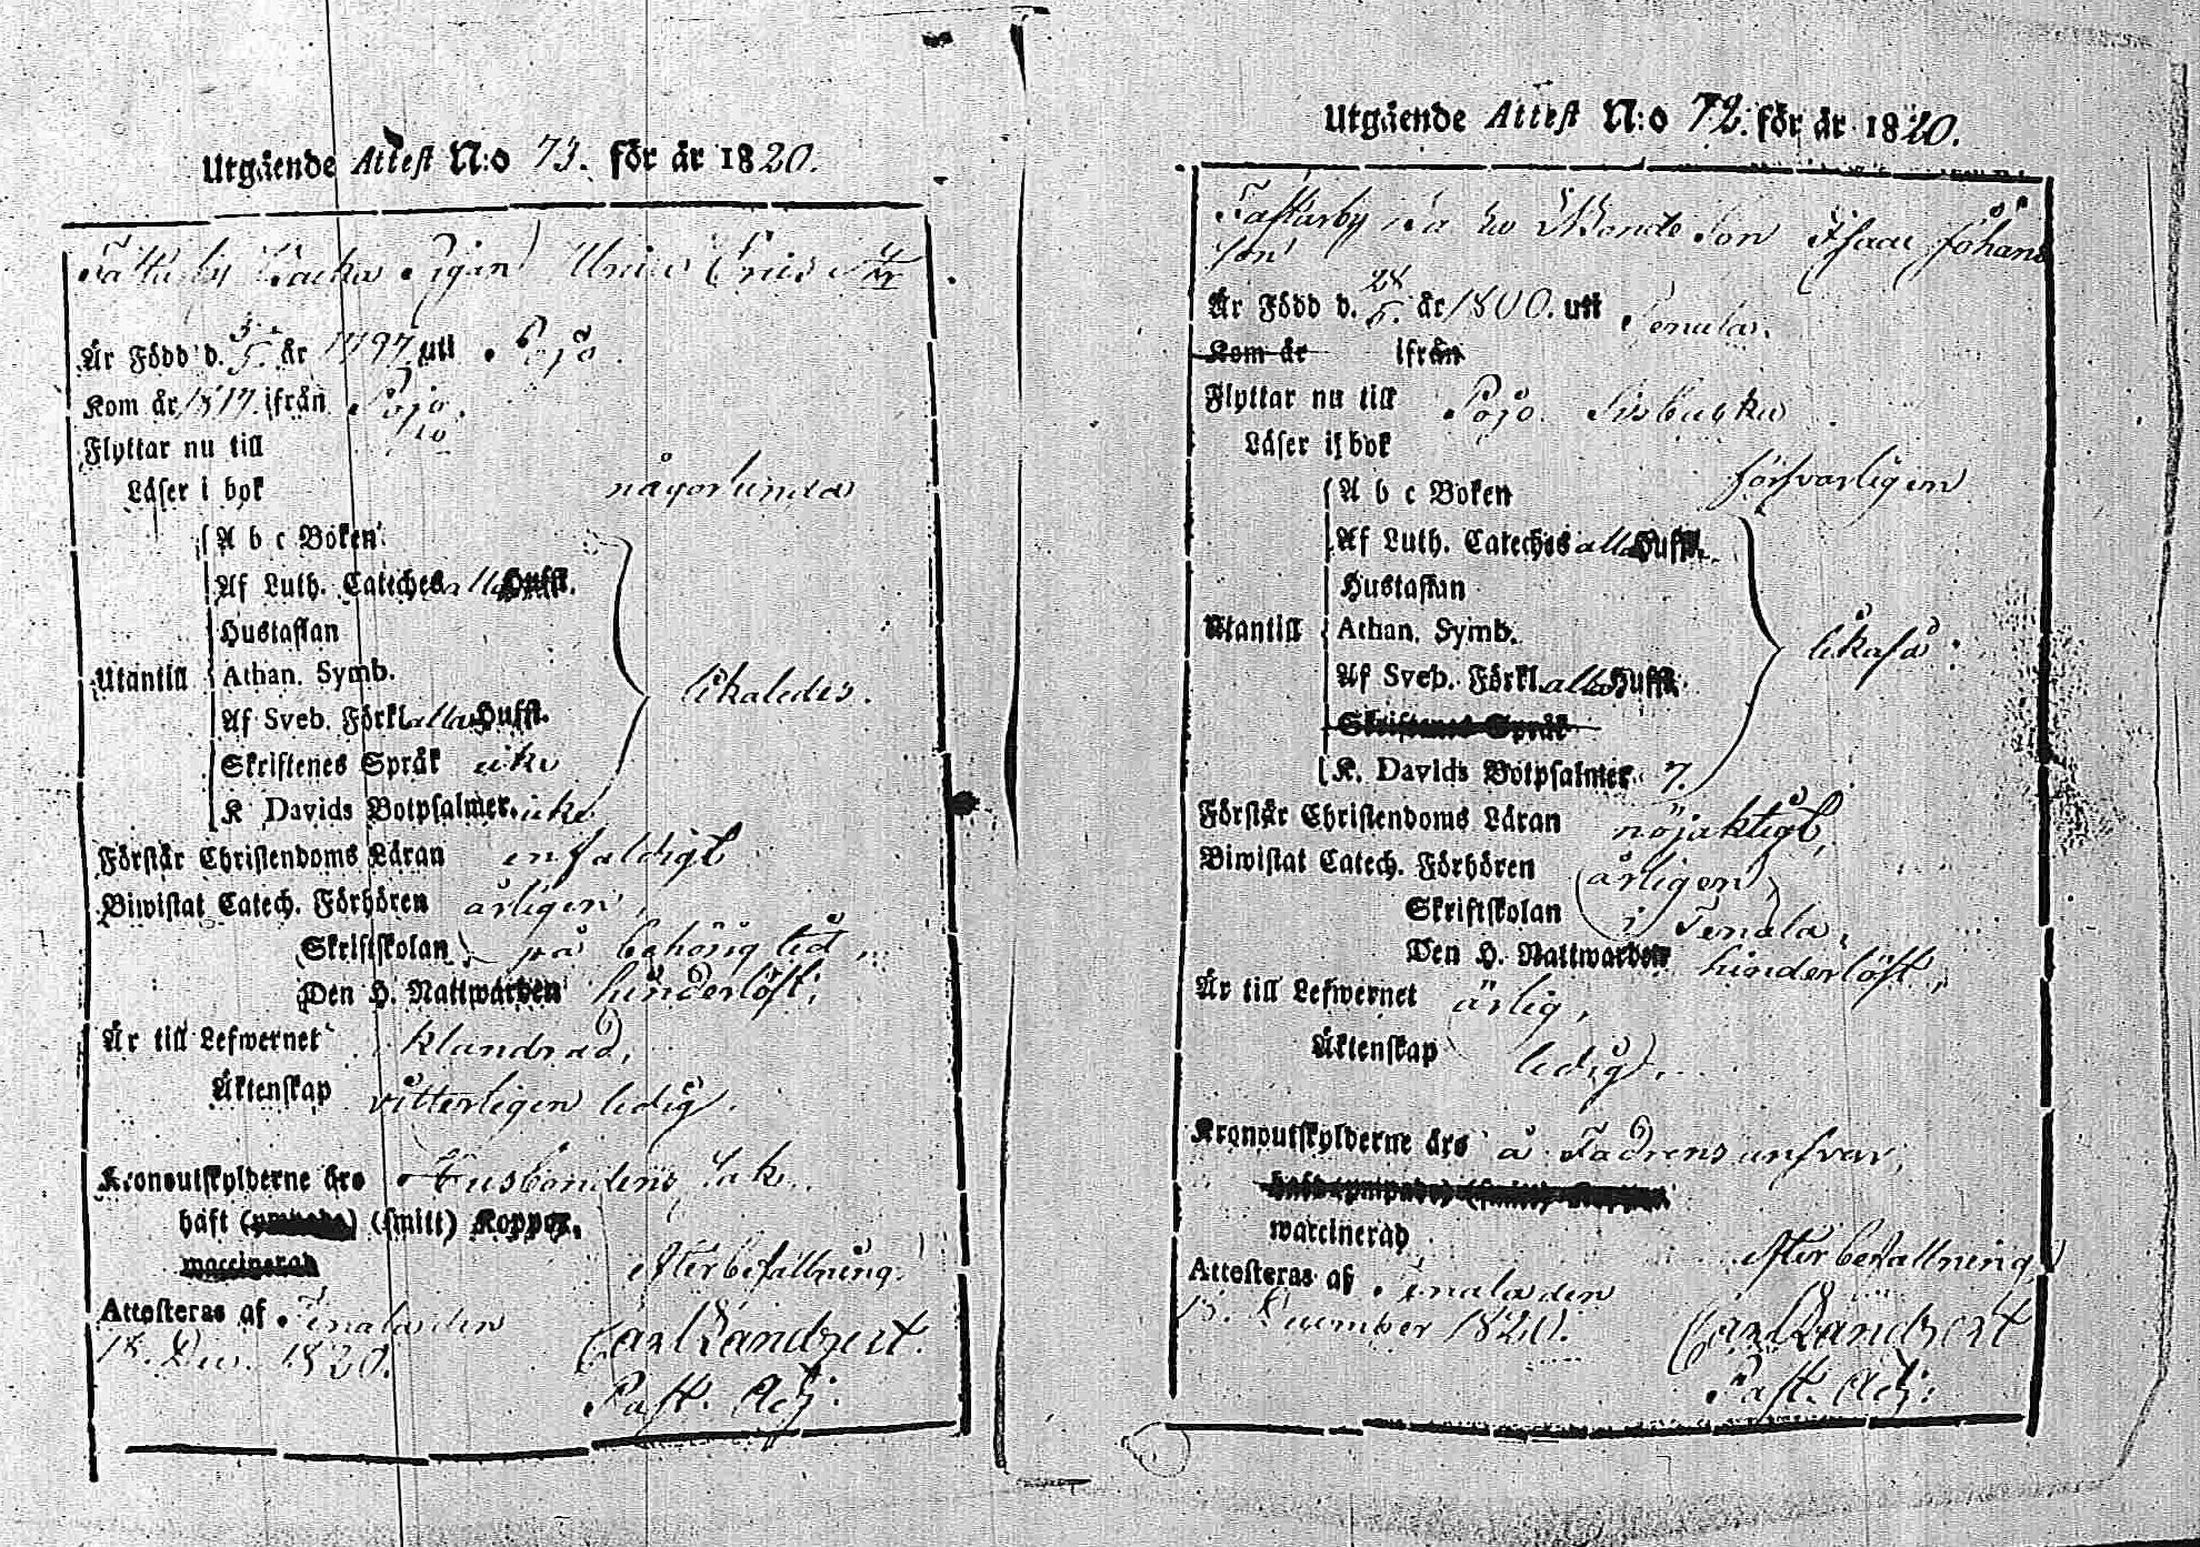 Utgående Attest N:o 73. för år 1820.
Backa Pigan Erics dr
Är Född d. 3/5. år 1797. uti Pojo.
Kom år 1817. ifrån Pojo.
Flyttar nu till
Läser i bok någorlunda
A b c Boken
Af Luth. Cateches alla Hufst.
Hustaflan
Utantill Athan. Symb. likaledes.
Af Sveb. Förkl. alla Hufst.
Skriftenes Språk icke
K Davids Botpsalmer. icke
Förstår Christendoms Läran enfaldigt
Biwistat Catech. Förhören årligen,
Skriftskolan på behörig tid,
Den H. Nattwarden hinderlöst,
Är till Lefwernet klandrad,
Äktenskap vitterligen ledig.
Kronoutskylderne äro Husbondens sak.
haft (smitt) Koppor.
waccinerad
efter befallning
Attesteras af Tenala den
18. Dec. 1820.
Carl
Past. Adj.
Utgående Attest N:o 72. för år 1820.
Bonde Son Isaac Johans
son
Är Född d. år 1800. uti Tenala.
Kom år ifrån
Flyttar nu till Pojo
Läser i bok
försvarligen
A b c Boken
Af Luth. Cateches alla Hufst.
Hustaflan
Utantill Athan. Symb. likaså
Af Sveb. Förkl. alla Hufst.
Skriftenes Språk
K. Davids Botpsalmer. 7.
Förstår Christendoms Läran nöjaktigt,
Biwistat Catech. Förhören årligen
Skriftskolan i Tenala,
Den H. Nattwarden hinderlöst,
Är till Lefwernet ärlig,
Äktenskap ledig.
Kronoutskylderne äro å Fadrens ansvar,
waccinerad
efter befallning
Attesteras af Tenala den
December 1820.
Carl
Past. Adj: